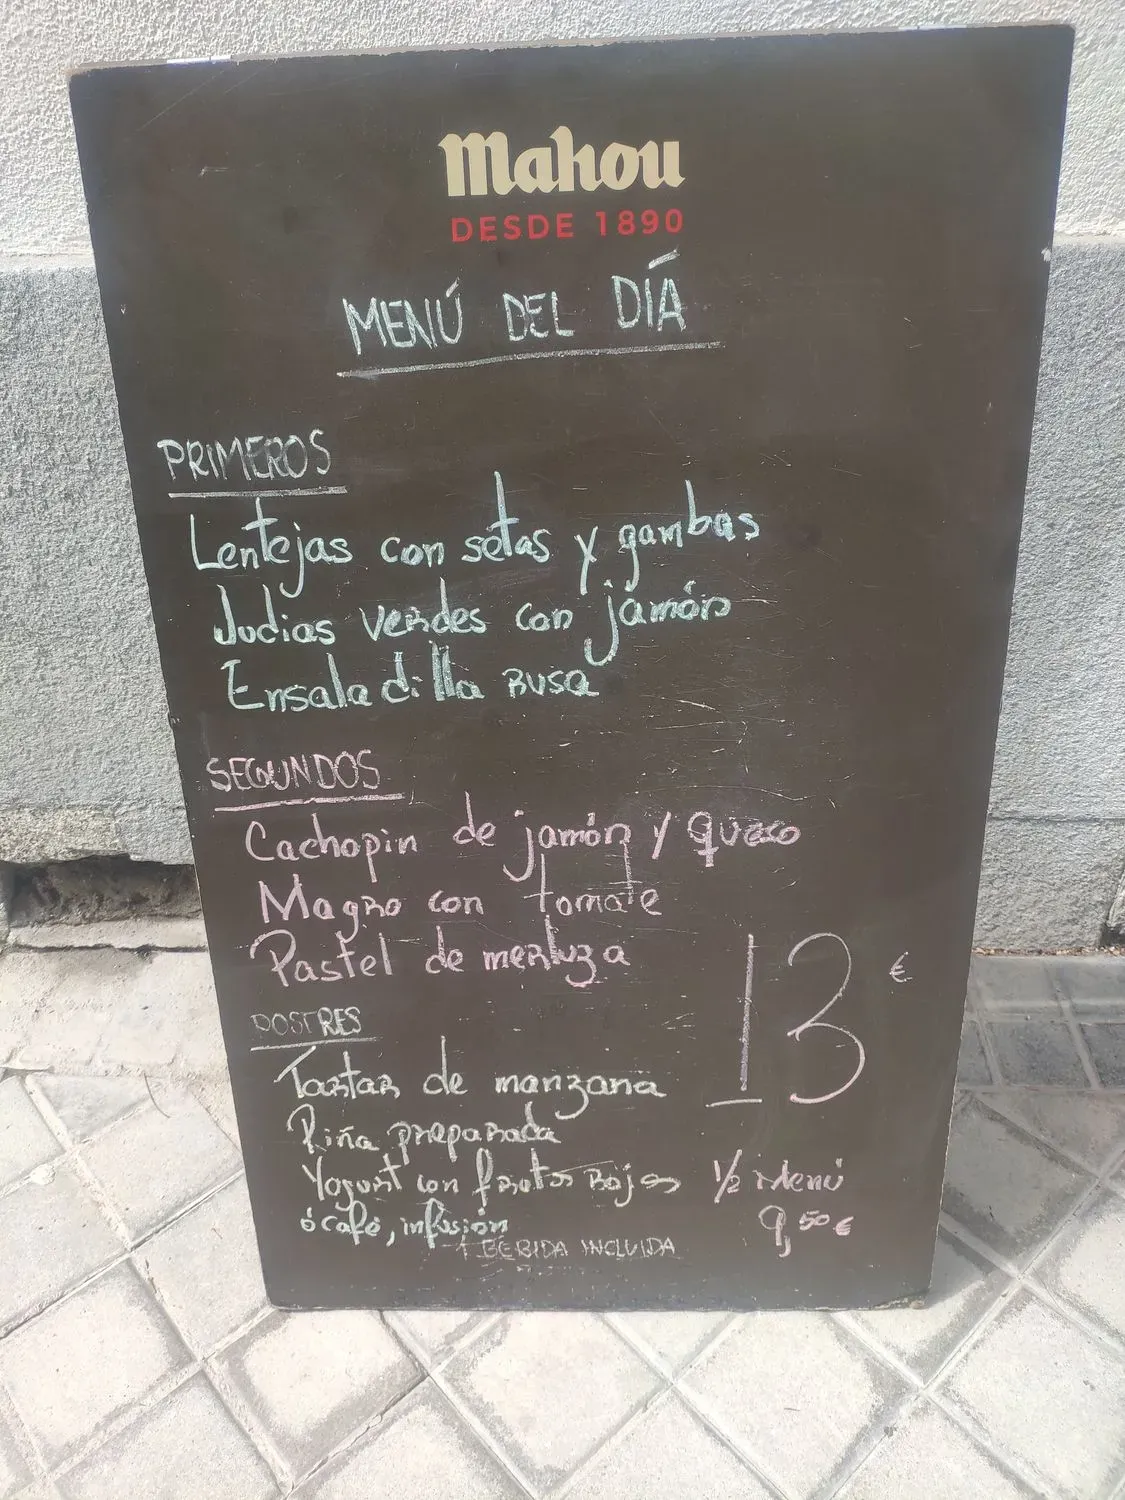 Mahou
DESDE 1890
MENÚ DEL DÍA
PRIMEROS
Lentejas con setas y gambas
Judias verdes con jamón
Ensaladilla rusa
SEGUNDOS
Cachopin de jamón y queso
Magro con tomate
Pastel de merluza
13 €
POSTRES
Tartar de manzana
Piña preparada
Yogurt con frutos rojos
ó café, infusión
1 BEBIDA INCLUIDA
1/2 Menú
9,50 €